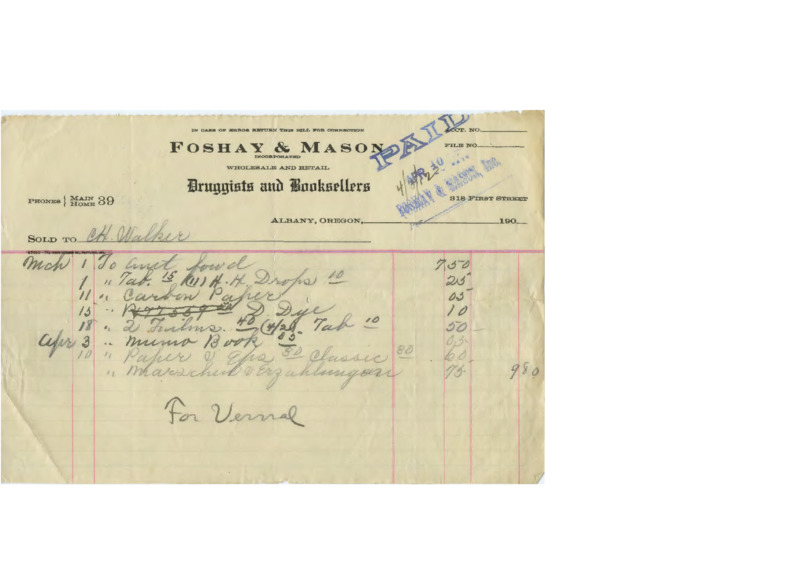 IN CASE OF ERROR RETURN THIS BILL FOR CORRECTION
ACCT. NO.
FOSHAY & MASON
INCORPORATED
FILE NO.
PAID
APR 10
FOSHAY & MASON, Inc.
WHOLESALE AND RETAIL
Druggists and Booksellers
PHONES MAIN HOME 39
318 FIRST STREET
ALBANY, OREGON, 190
SOLD TO C.H. Walker
Mch 1 To amt fowd 7.50
1 " Tab. 15 (11) H.H. Drops 10 25
11 " Carbon Paper 05
15 " D Dye 10
18 " 2 Fuilms. 40 (4/20) Tab 10 50
Apr 3 " Mumo Book 05 05
10 " Paper & Eps 50 Classic 60
" Marschen & Erzahlungen 75 980
For Vernal